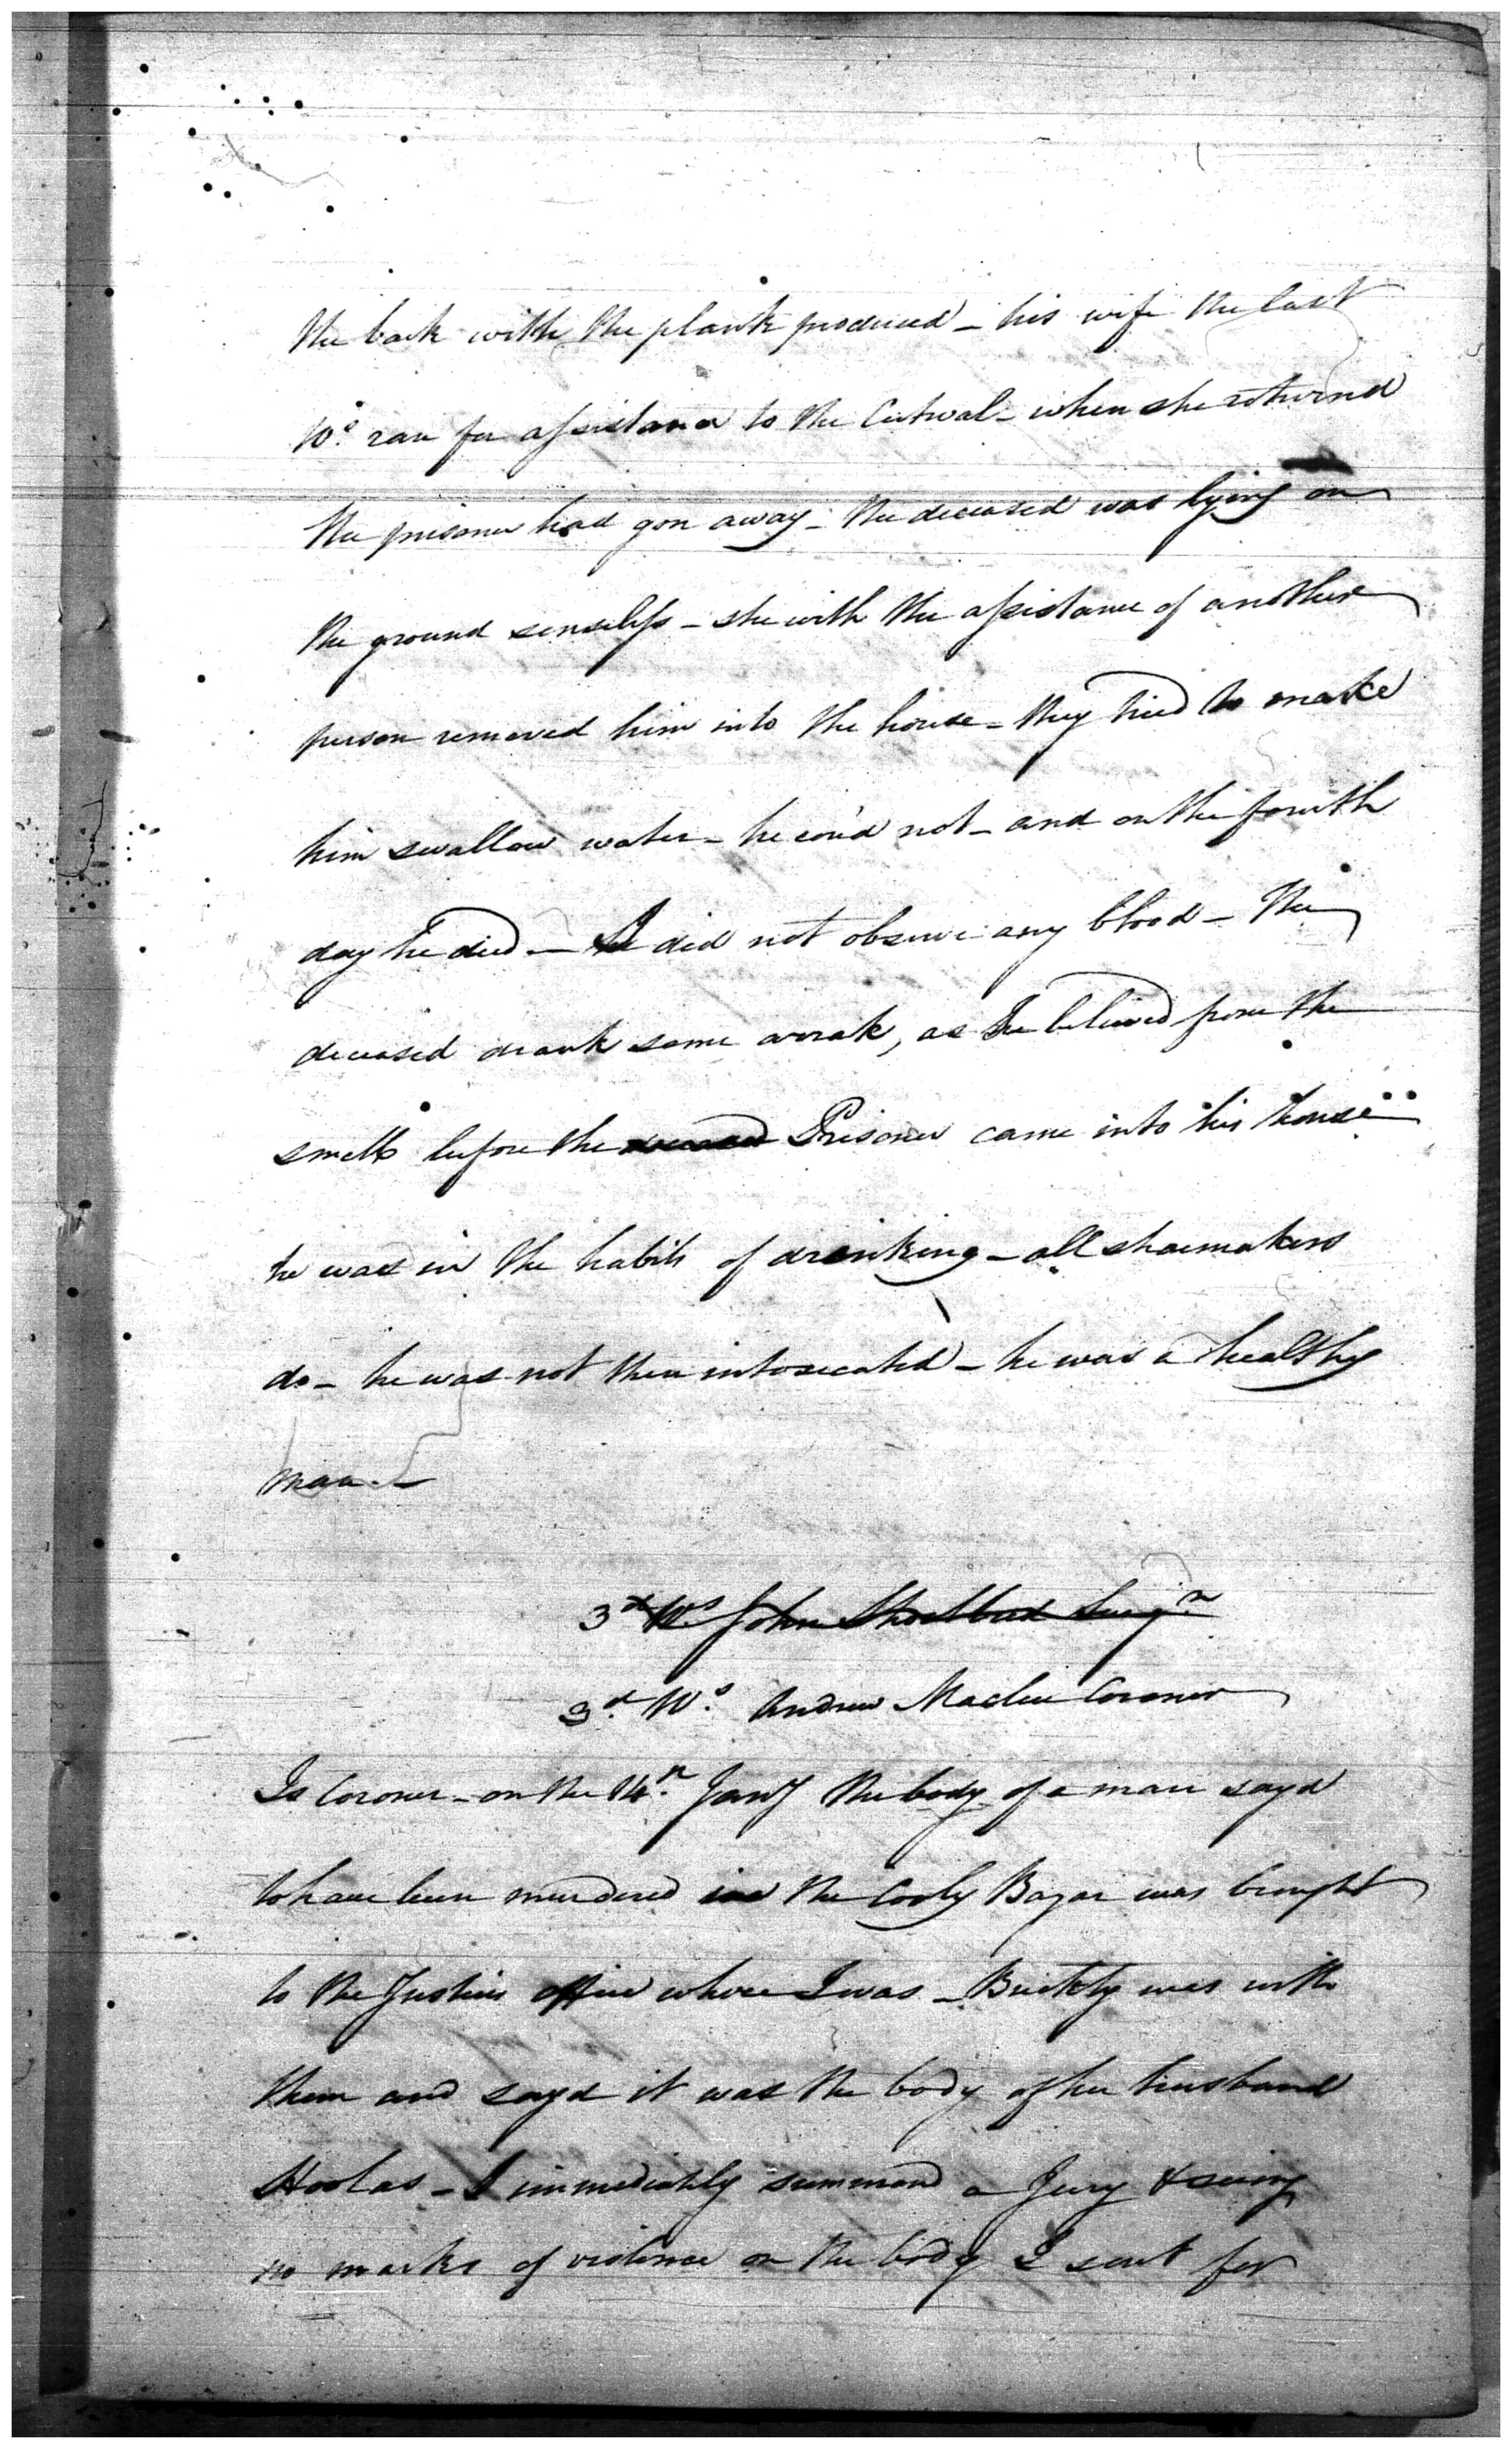 the back with the plank produced – his wife the last
Ws. ran for assistance to the Cutwal – when she returnd
the prisoner had gon away – the deceased was lying on
the ground senseless – she with the assistance of another
person removed him into the house – they tried to make
him swallow water – he cou'd not – and on the fourth
day he died – did not observe any blood – The
deceased drank some arrak, as he believed from the
smell before the Prisoner came into his house
he was in the habits of drinking – all shoemakers
do – he was not then intoxecated – he was a healthy
man. –
3d Ws John Surgn
3d. Ws. Andrew Coroner
Is Coroner – on the 14th. Jany the body of a man sayd
to have been murdered in the Cooly Bazar was brought
to the Justices office where I was – was with
them and sayd it was the body of her husband
Hoolas – I immediatly summond a Jury & seeing
no marks of violence on the body I sent for